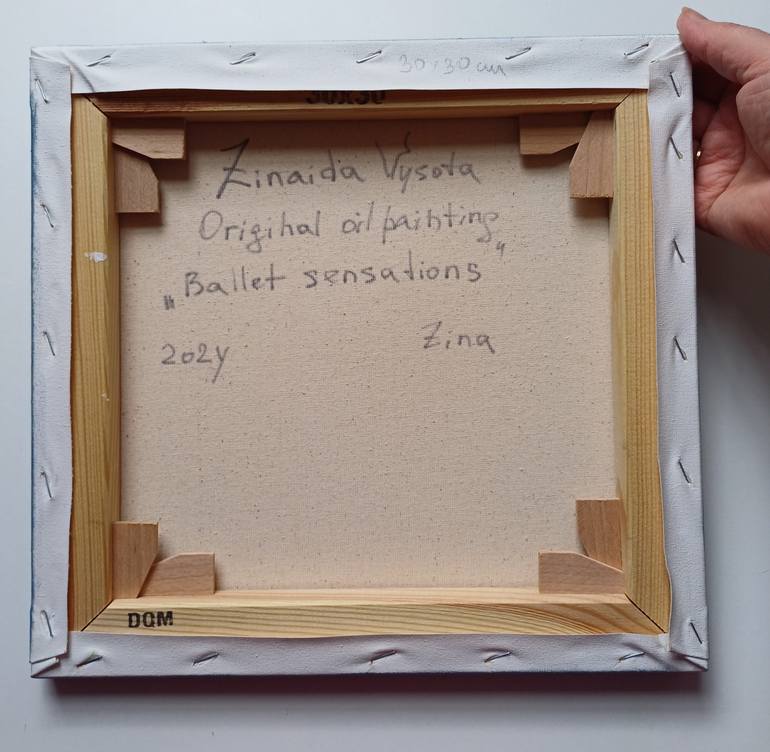 30x30 cm
30X30
Zinaida Vysota
Original oil painting
„Ballet sensations"
2024
Zina
DQM